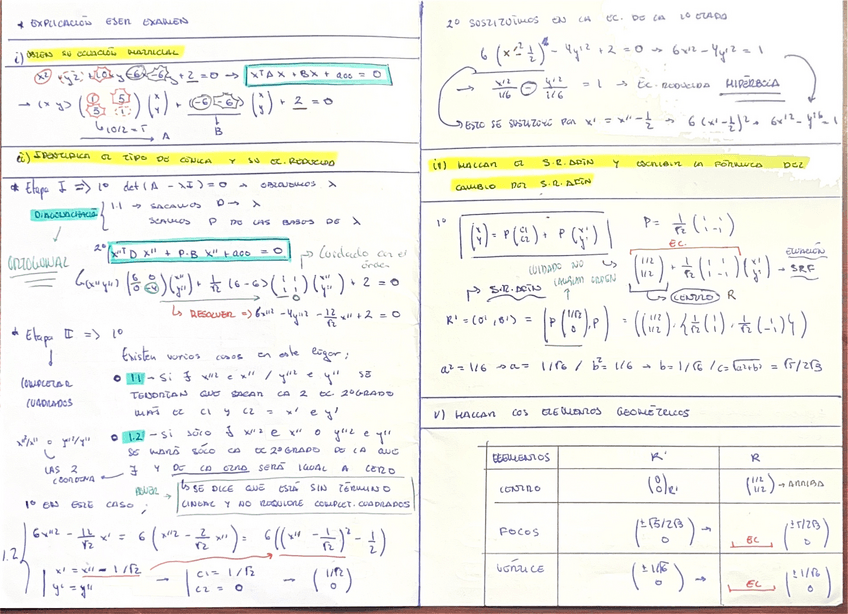 * EXPLICACIÓN ESER EXAMEN
i) OBTEN SU ECUACIÓN MATRICIAL
x² + y² + 10xy - 6x - 6y + 2 = 0 → xᵀAX + BX + a₀₀ = 0
→ (x y) (1 5 / 5 1) (x / y) + (-6 -6) (x / y) + 2 = 0
↳ 10/2 = 5 A B
ii) IDENTIFICA EL TIPO DE CÓNICA Y SU EC. REDUCIDA
* Etapa I ⇒ 1º det(A - λI) = 0 → OBTENEMOS λ
DIAGONALIZACIÓN
1.1 → SACAMOS D → λ
SCAMOS P DE LAS BASES DE λ
ORTOGONAL
2º X''ᵀ D X'' + P·B X'' + a₀₀ = 0 → Cuidado con el orden
↳ (x'' y'') (6 0 / 0 -4) (x'' / y'') + 1/√2 (-6 -6) (1 1 / 1 -1) (x'' / y'') + 2 = 0
↳ RESOLVER ⇒ 6x''² - 4y''² - 12/√2 x'' + 2 = 0
* Etapa II ⇒ 1º
COMPLETAR CUADRADOS
Existen varios casos en este lugar;
1.1 → Si ∃ x''² e x'' / y''² e y'' SE
TENDRÍAN QUE SACAR LA 2 EC. 2ºGRADO
C1 Y C2 = x' e y'
x''²/x'' o y''²/y''
1.2 - Si SÓLO ∃ x''² e x'' o y''² e y''
SE HARÁ SÓLO LA EC 2ºGRADO DE LA QUE
∃ Y DE LA OTRA SERÁ IGUAL A CERO
LAS 2
↳ SE DICE QUE ESTÁ SIN TÉRMINO
LINEAL Y NO REQUIERE COMPLET. CUADRADOS
1º EN ESTE CASO;
1.2
6x''² - 12/√2 x' = 6 (x''² - 2/√2 x'') = 6((x'' - 1/√2)² - 1/2)
x' = x'' - 1/√2
y' = y''
→ C1 = 1/√2
C2 = 0
→ (1/√2 / 0)
2º SUSTITUIMOS EN LA EC. DE LA 1º ETAPA
6 (x'² - 1/2) - 4y'² + 2 = 0 → 6x'² - 4y'² = 1
→ x'²/1/6 - y'²/1/6 = 1 → EC. REDUCIDA HIPÉRBOLA
→ ESTO SE SUSTITUYE POR x' = x'' - 1/2 → 6(x' - 1/2)² = 6x'² - y'²⁶ = 1
iv) HALLAR EL S.R. AFÍN Y ESCRIBIR LA FÓRMULA DEL
CAMBIO DEL S.R. AFÍN
1º (x / y) = P (C1 / C2) + P (x' / y')
P = 1/√2 (1 1 / 1 -1)
EC.
(1/2 / 1/2) + 1/√2 (1 1 / 1 -1) (x' / y') → ECUACIÓN SRF
CUIDADO NO CAMBIAR ORDEN
CENTRO R
→ S.R. AFÍN
R' = (O', B') = (P (1/√2 / 0), P) = ((1/2 / 1/2), {1/√2 (1 / 1), 1/√2 (1 / -1)})
a² = 1/6 → a = 1/√6 / b² = 1/6 → b = 1/√6 / c = √(a²+b²) = √5/2√3
V) HALLAR LOS ELEMENTOS GEOMÉTRICOS
ELEMENTOS R' R
CENTRO (0 / 0)R' (1/2 / 1/2) → ARRIBA
FOCOS (±√5/2√3 / 0) → EC (±√5/2√3 / 0)
VÉRTICE (±1/√6 / 0) → EC (±1/√6 / 0)